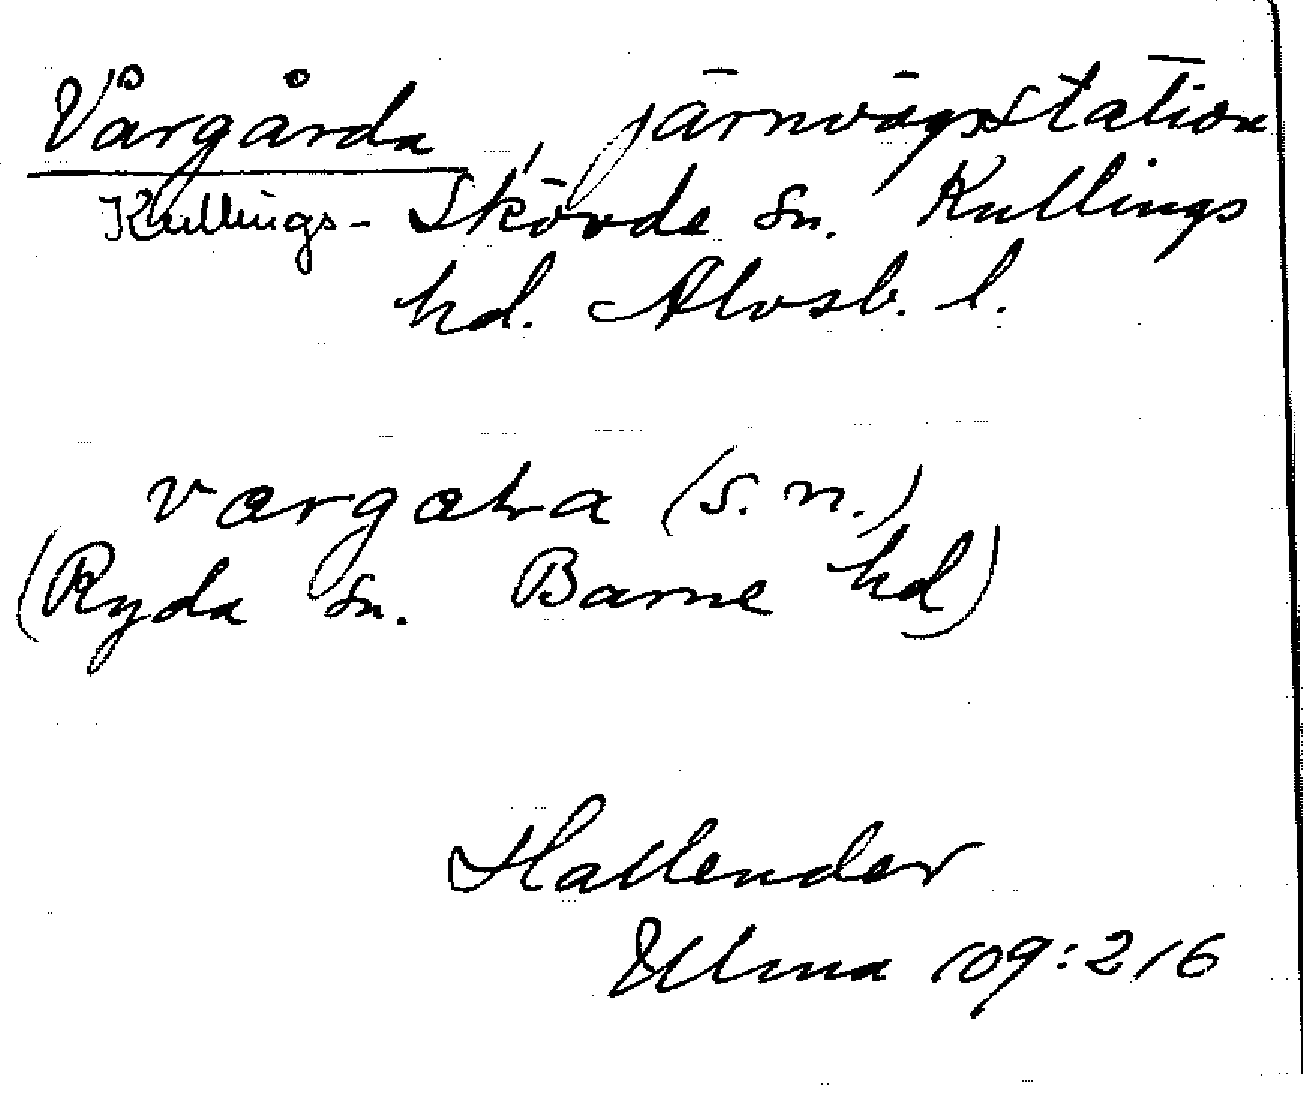 Vårgårda, järnvägsstation
Kullings-Skövde sn. Kullings
hd. Älvsb. l.
(s.n.)
(Ryda sn. Barne hd)
Hallender
Ulma 109:216